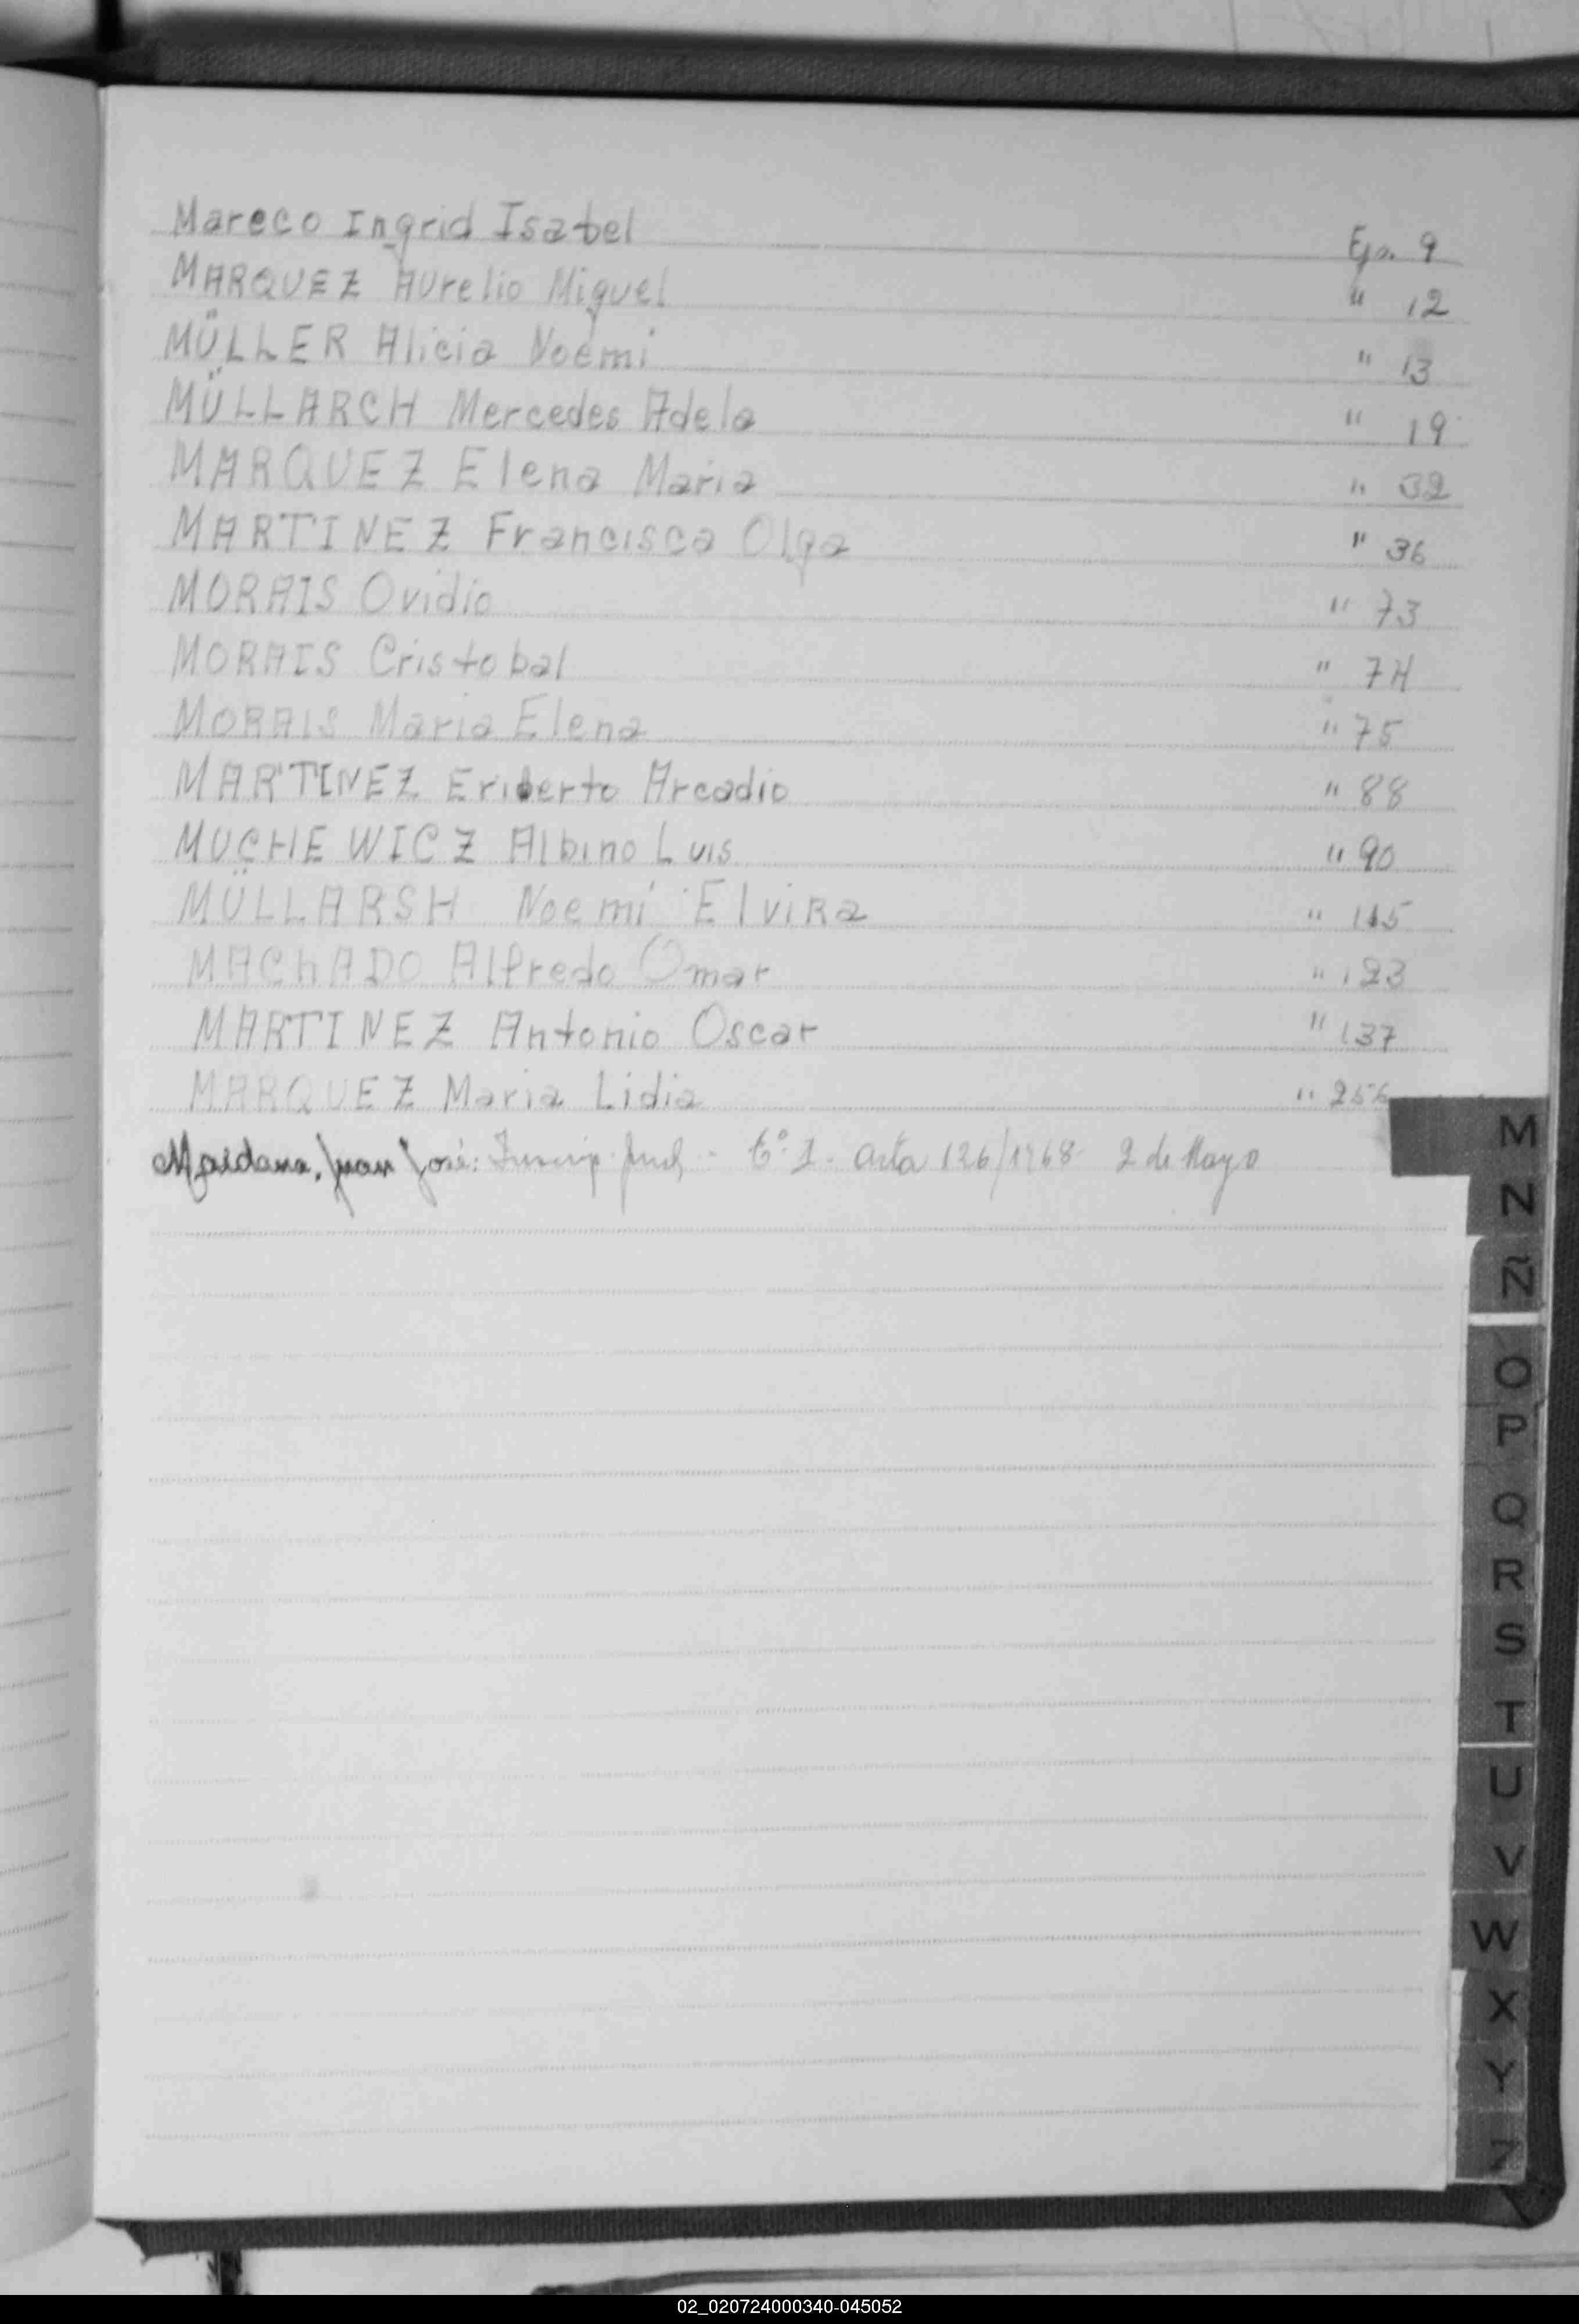 Mareco Ingrid Isabel Fjs. 9
MARQUEZ Aurelio Miguel " 12
MÜLLER Alicia Noemi " 13
MÜLLARCH Mercedes Adela " 19
MARQUEZ Elena Maria " 32
MARTINEZ Francisca Olga " 36
MORAIS Ovidio " 73
MORAIS Cristobal " 74
MORAIS Maria Elena " 75
MARTINEZ Eriberto Arcadio " 88
MUCHEWICZ Albino Luis " 90
MÜLLARSH Noemí Elvira " 115
MAChADO Alfredo Omar " 123
MARTINEZ Antonio Oscar " 137
MARQUEZ Maria Lidia " 256
Maidana, Juan José: Inscrip. Jud. - tº 1 - acta 126/1968 2 de Mayo
M
N
Ñ
O
P
Q
R
S
T
U
V
W
X
Y
Z
02_020724000340-045052